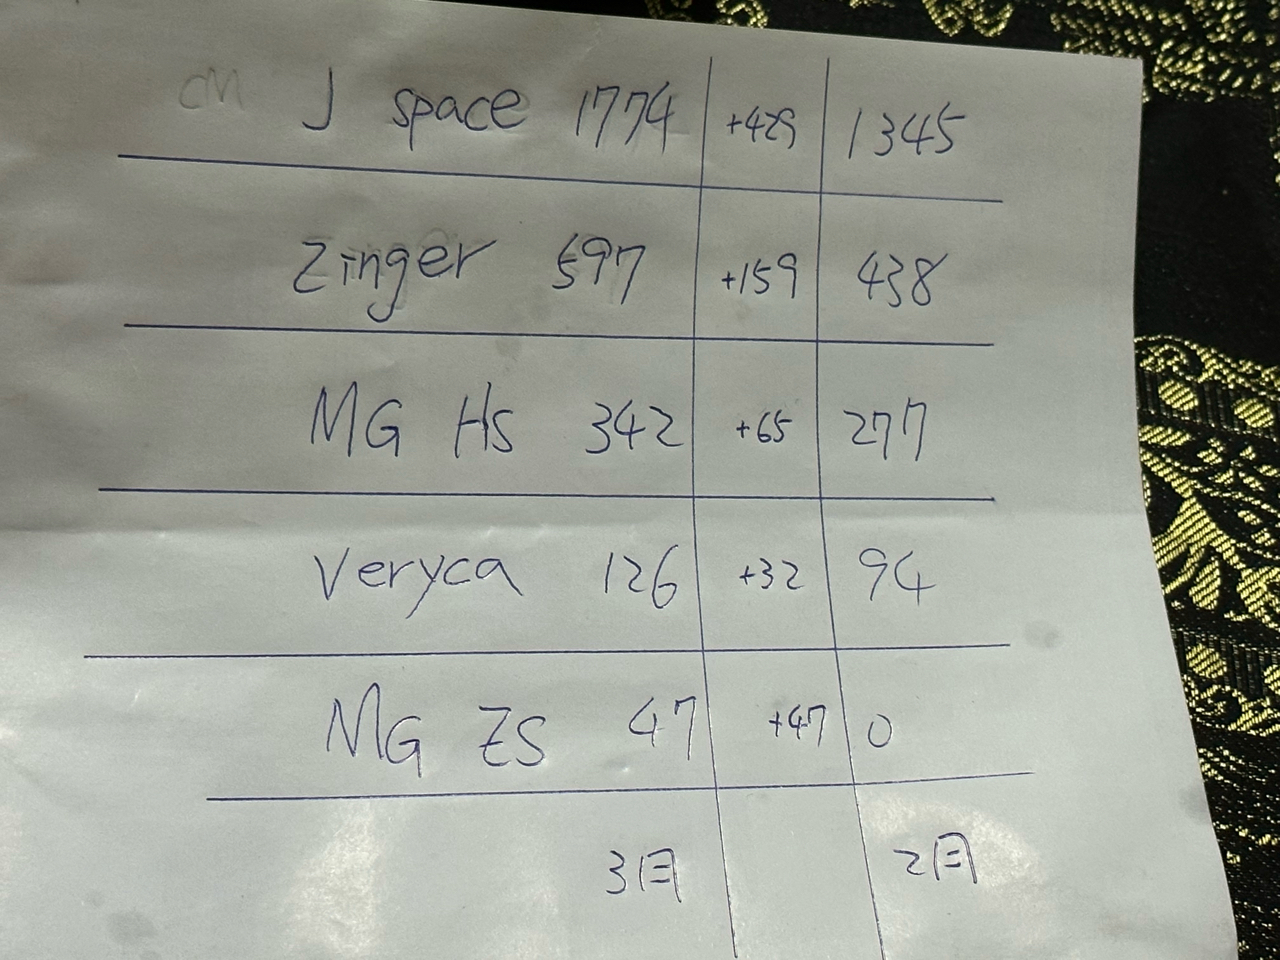 CM J space 1774 +429 1345
Zinger 597 +159 438
MG HS 342 +65 277
Veryca 126 +32 94
MG ZS 47 +47 0
3月 2月